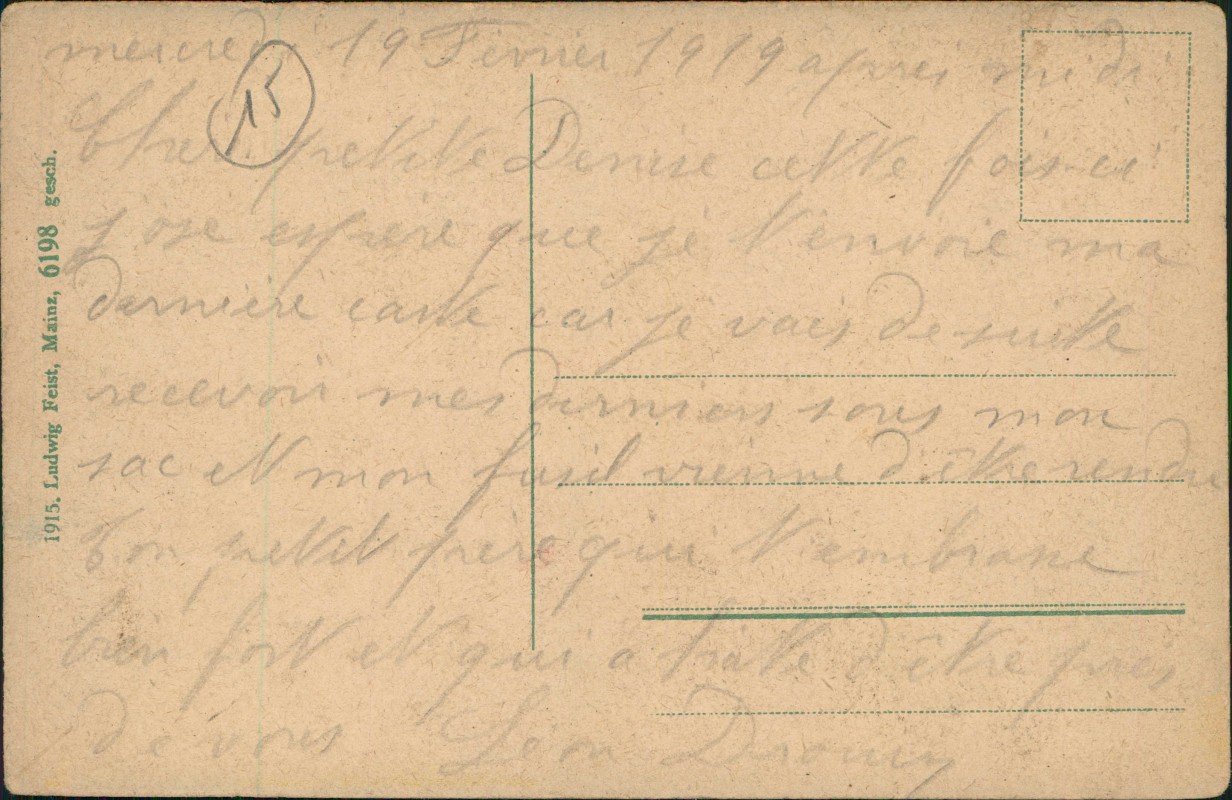 mercredi 19 Février 1919 après midi
15
Cher petite Denise cette fois-ci
j'ose espéré que je t'envoie ma
dernière carte car je vais de suite
recevoir mes derniers sous mon
sac et mon fusil vienne d'être rendu
Ton petit père qui t'embrasse
bien fort et qui a hate d'être près
de vous Léon Drouin
1915. Ludwig Feist, Mainz, 6198 gesch.